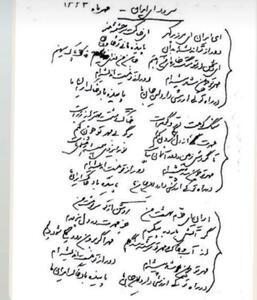 سرود ای ایران - مهرماه ۱۳۲۳
ای ایران ای مرز پر گهر ای خاکت سرچشمه هنر
دور از تو اندیشه بدان پاینده مانی تو جاودان
جان من فدای خاک پاک میهنم
مهر تو چون شد پیشه‌ام دور از تو نیست اندیشه‌ام
در راه تو کی ارزشی دارد این جان ما پاینده باد خاک ایران ما
سنگ کوهت در و گوهر است خاک دشتت بهتر از زر است
مهرت از دل کی برون کنم برگو بی مهر تو چون کنم
تا گردش جهان و دور آسمان بپاست نور ایزدی همیشه رهنمای ماست
مهر تو چون شد پیشه‌ام دور از تو نیست اندیشه‌ام
در راه تو کی ارزشی دارد این جان ما پاینده باد خاک ایران ما
ایران ای خرم بهشت من روشن از تو سرنوشت من
گر آتش بارد به پیکرم جز مهرت در دل نپرورم
از آب و خاک و مهر تو سرشته شد گلم مهر اگر برون رود تهی شود دلم
مهر تو چون شد پیشه‌ام دور از تو نیست اندیشه‌ام
در راه تو کی ارزشی دارد این جان ما پاینده باد خاک ایران ما